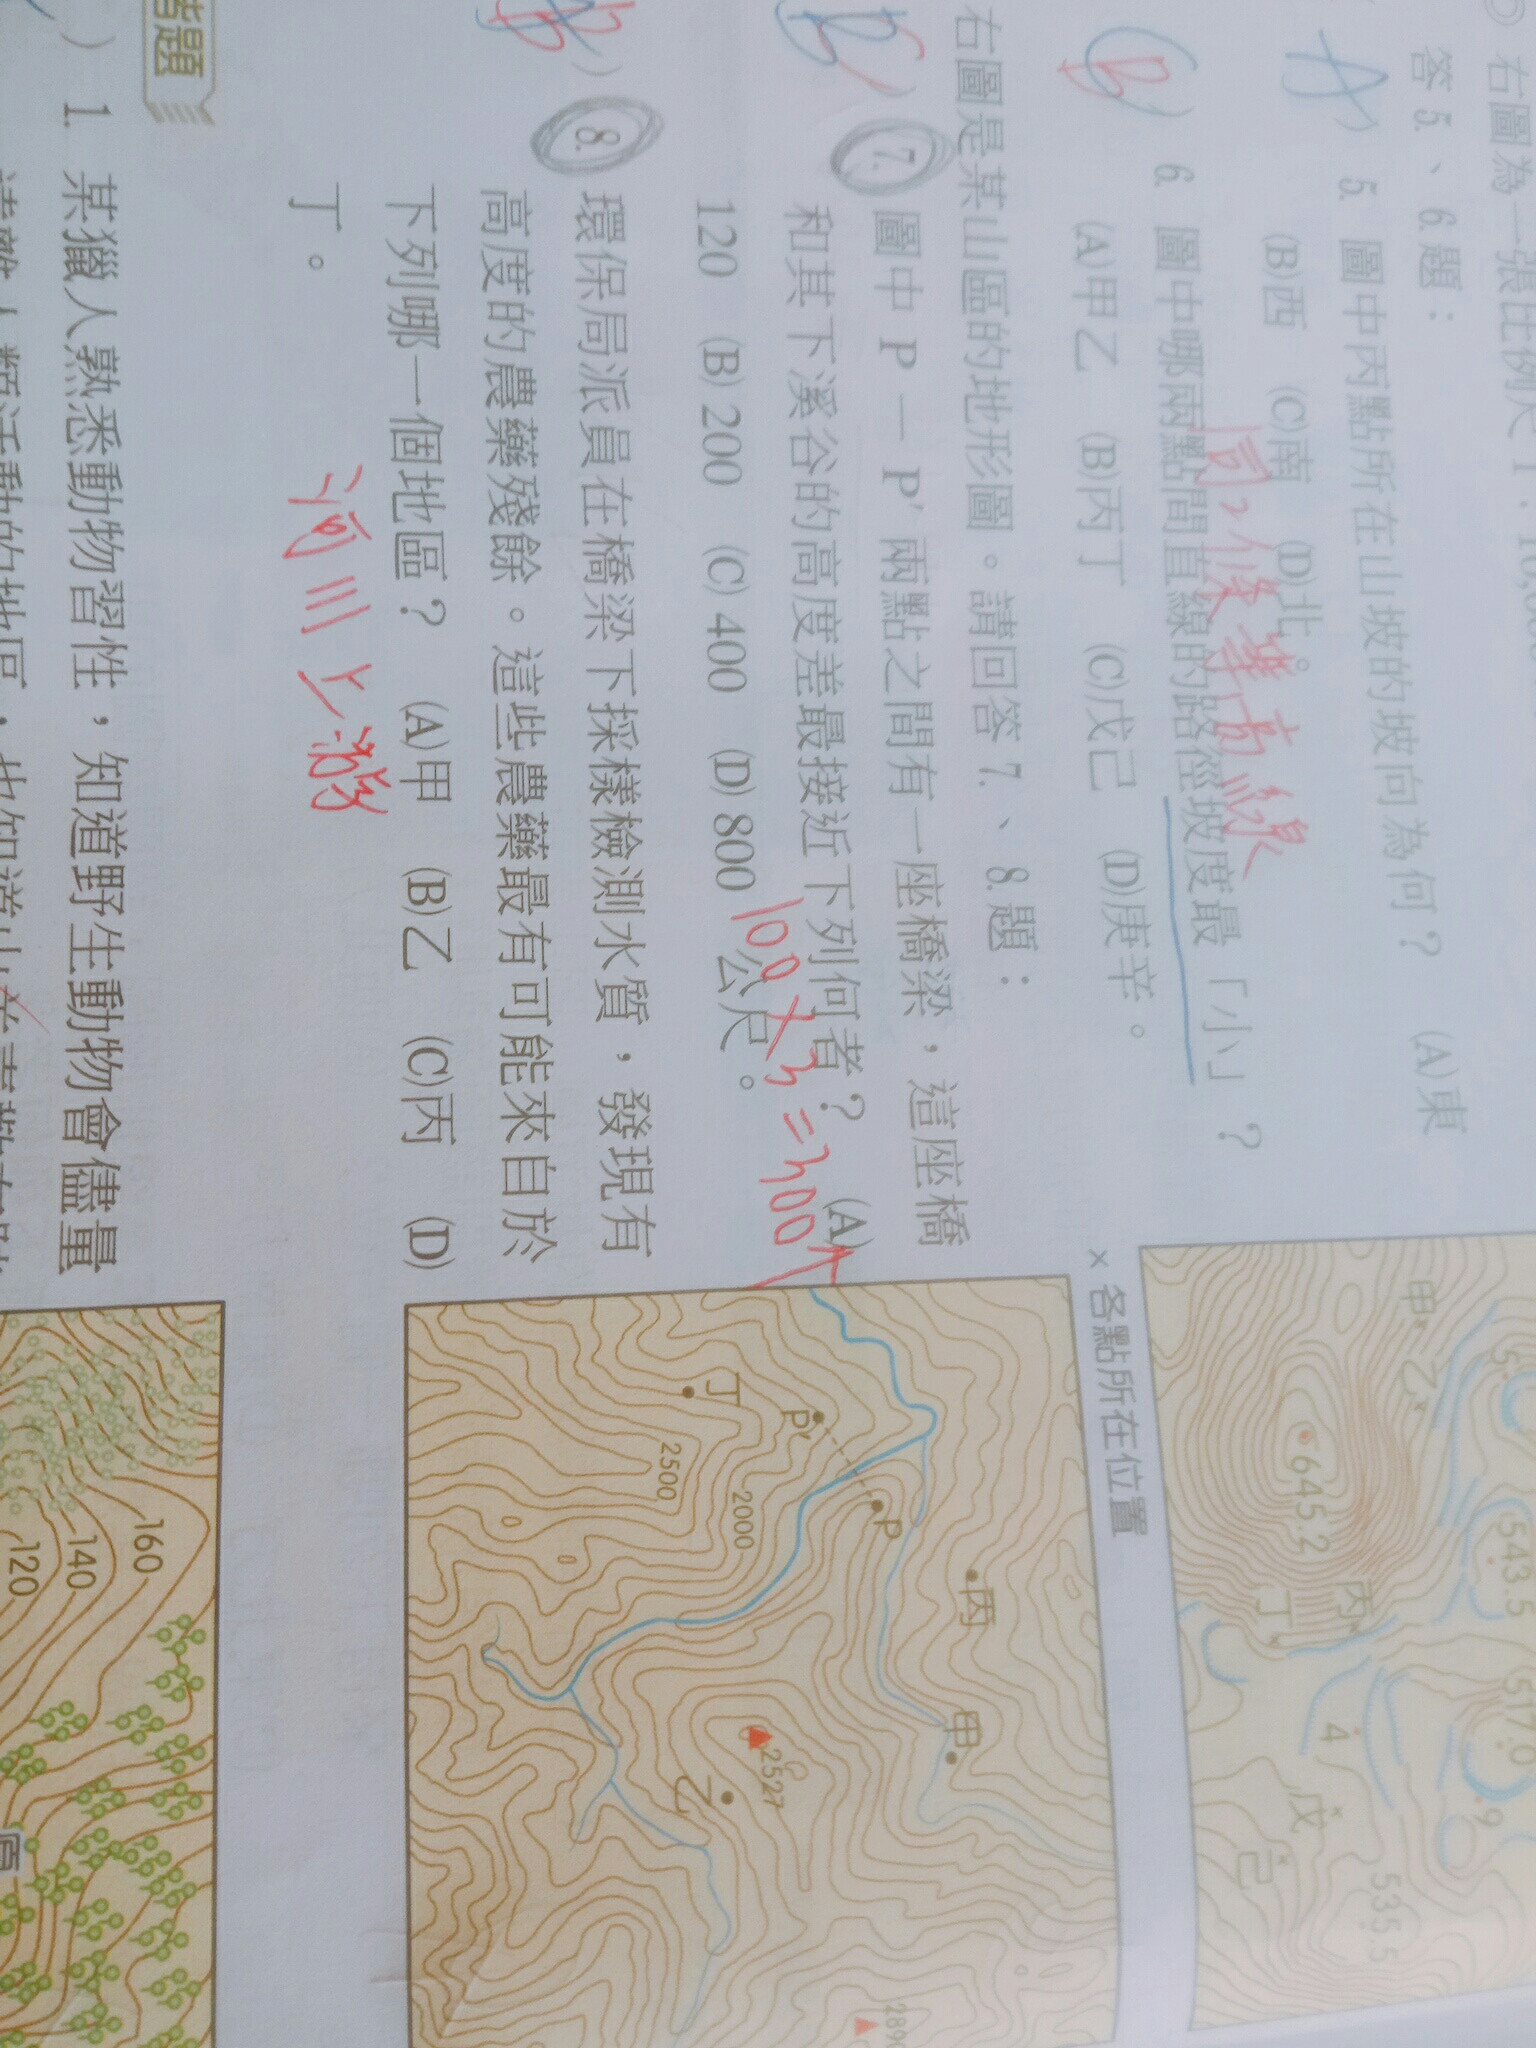 右圖為一張比例尺 1:10,000
答 5.、6.題:
A ) 5. 圖中丙點所在山坡的坡向為何? (A)東
(B)西 (C)南 (D)北。
(B) 6. 圖中哪兩點間直線的路徑坡度最「小」?
同一條等高線
(A)甲乙 (B)丙丁 (C)戊己 (D)庚辛。
右圖是某山區的地形圖。請回答 7.、8.題:
) 7. 圖中 P — P′ 兩點之間有一座橋梁,這座橋
和其下溪谷的高度差最接近下列何者? (A)
120 (B) 200 (C) 400 (D) 800 公尺。
100×3=300↑
) 8. 環保局派員在橋梁下採樣檢測水質,發現有
高度的農藥殘餘。這些農藥最有可能來自於
下列哪一個地區? (A)甲 (B)乙 (C)丙 (D)
丁。
河川上游
題
) 1. 某獵人熟悉動物習性,知道野生動物會儘量
甲
乙
645.2
543.5
丙
丁
517.0
4
9
戊
己
535.5
× 各點所在位置
丁
P′
P
丙
甲
2500
2000
2527
乙
289
160
140
120